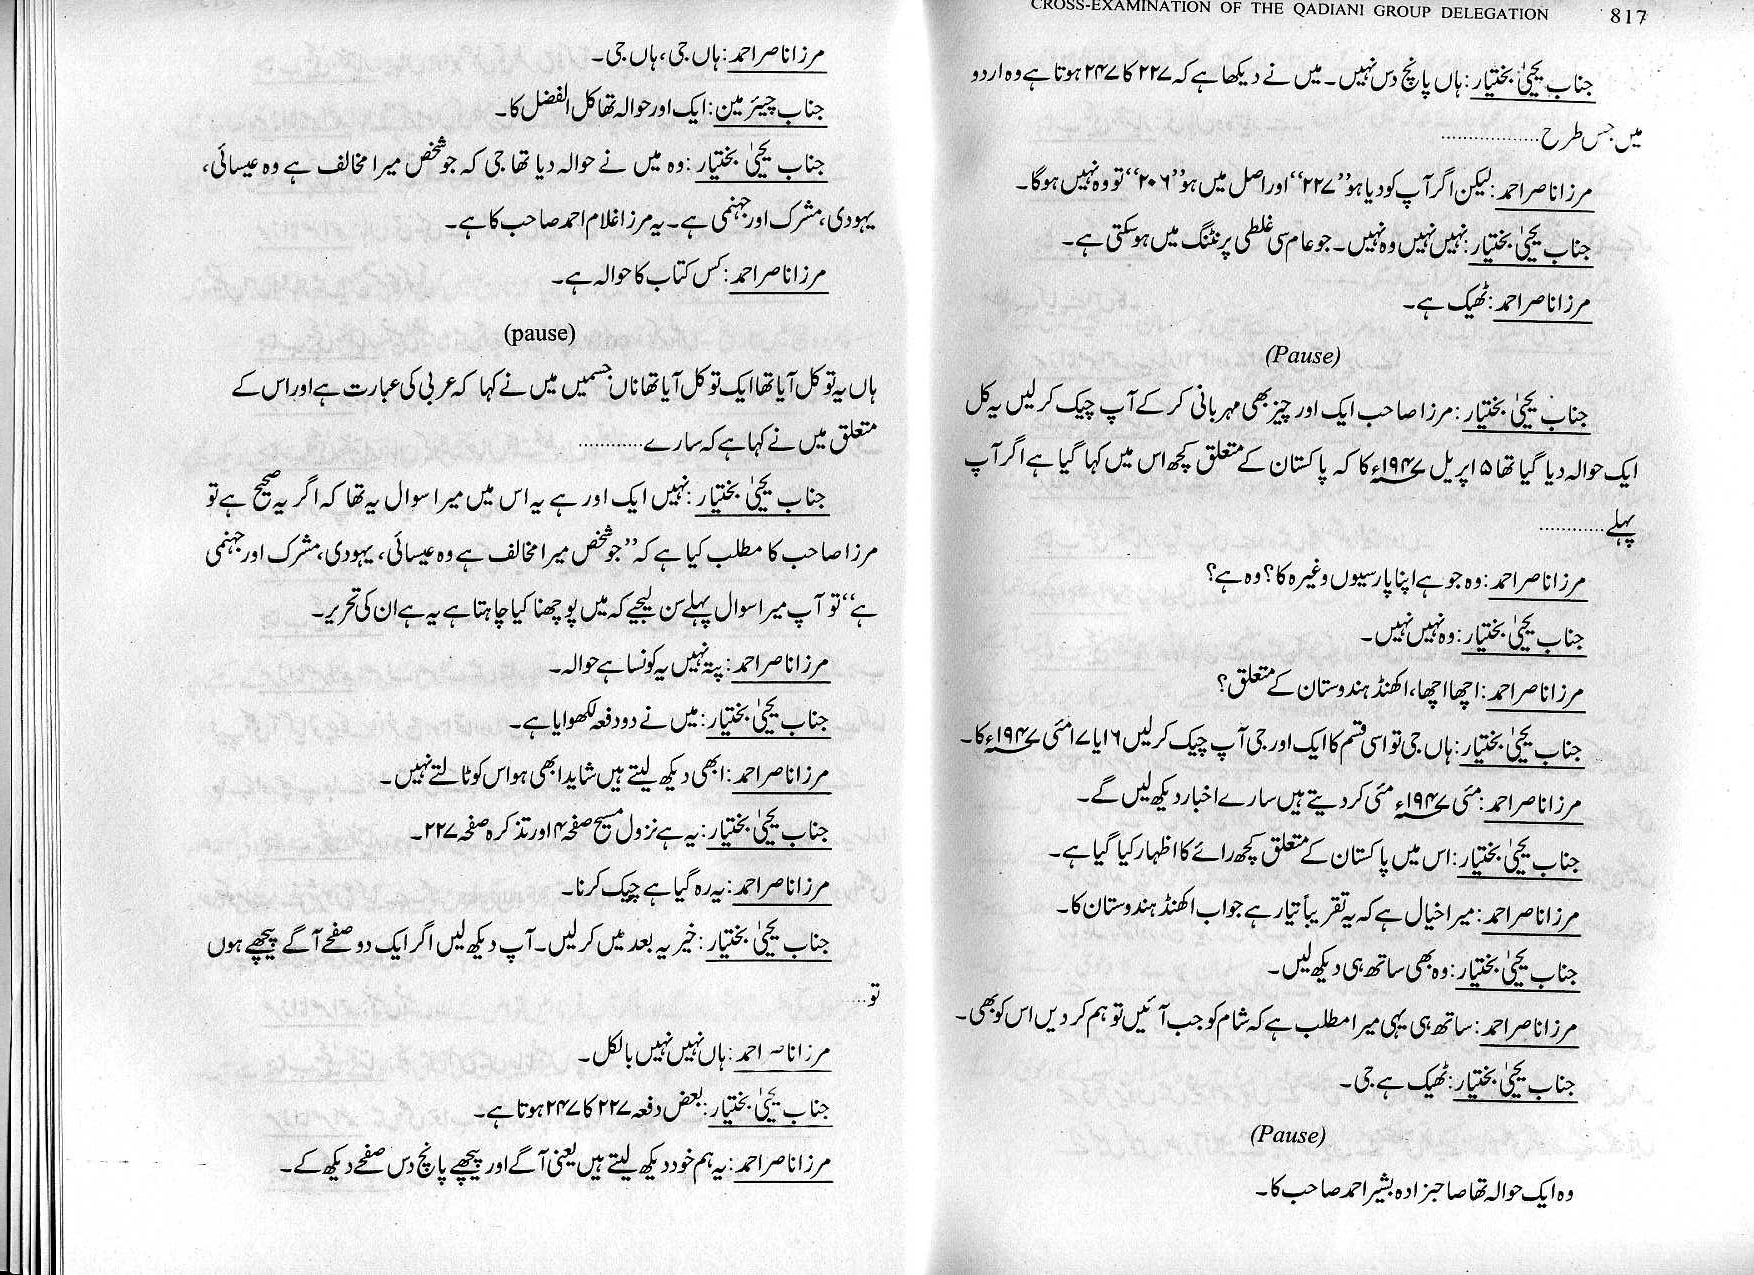 مرزا ناصر احمد: ہاں جی، ہاں جی۔
جناب چیئرمین: ایک اور حوالہ تھا کل الفضل کا۔
جناب یحییٰ بختیار: وہ میں نے حوالہ دیا تھا جی کہ جو شخص میرا مخالف ہے وہ عیسائی،
یہودی، مشرک اور جہنمی ہے۔ یہ مرزا غلام احمد صاحب کا ہے۔
مرزا ناصر احمد: کس کتاب کا حوالہ ہے۔
(pause)
ہاں یہ تو کل آیا تھا ایک تو کل آیا تھا ناں جسمیں میں نے کہا کہ عربی کی عبارت ہے اور اس کے
متعلق میں نے کہا ہے کہ سارے............
جناب یحییٰ بختیار: نہیں ایک اور ہے یہ اس میں میرا سوال یہ تھا کہ اگر یہ صحیح ہے تو
مرزا صاحب کا مطلب کیا ہے کہ ’’جو شخص میرا مخالف ہے وہ عیسائی، یہودی، مشرک اور جہنمی
ہے‘‘ تو آپ میرا سوال پہلے سن لیجیے کہ میں پوچھنا کیا چاہتا ہے یہ ہے ان کی تحریر۔
مرزا ناصر احمد: پتہ نہیں یہ کونسا ہے حوالہ۔
جناب یحییٰ بختیار: میں نے دو دفعہ لکھوایا ہے۔
مرزا ناصر احمد: ابھی دیکھ لیتے ہیں شاید ابھی ہو اس کو ٹالتے نہیں۔
جناب یحییٰ بختیار: یہ ہے نزول مسیح صفحہ ۴ اور تذکرہ صفحہ ۲۲۷۔
مرزا ناصر احمد: یہ رہ گیا ہے چیک کرنا۔
جناب یحییٰ بختیار: خیر یہ بعد میں کرلیں۔ آپ دیکھ لیں اگر ایک دو صفحے آگے پیچھے ہوں
تو....
مرزا ناصر احمد: ہاں نہیں نہیں بالکل۔
جناب یحییٰ بختیار: بعض دفعہ ۲۲۷ کا ۲۴۷ ہوتا ہے۔
مرزا ناصر احمد: یہ ہم خود دیکھ لیتے ہیں یعنی آگے اور پیچھے پانچ دس صفحے دیکھ کے۔
CROSS-EXAMINATION OF THE QADIANI GROUP DELEGATION 817
جناب یحییٰ بختیار: ہاں پانچ دس نہیں۔ میں نے دیکھا ہے کہ ۲۲۷ کا ۲۴۷ ہوتا ہے وہ اردو
میں جس طرح..................
مرزا ناصر احمد: لیکن اگر آپ کو دیا ہو ’’۲۲۷‘‘ اور اصل میں ہو ’’۲۰۶‘‘ تو وہ نہیں ہوگا۔
جناب یحییٰ بختیار: نہیں نہیں وہ نہیں۔ جو عام سی غلطی پرنٹنگ میں ہوسکتی ہے۔
مرزا ناصر احمد: ٹھیک ہے۔
(Pause)
جناب یحییٰ بختیار: مرزا صاحب ایک اور چیز بھی مہربانی کر کے آپ چیک کرلیں یہ کل
ایک حوالہ دیا گیا تھا ۵ اپریل ۱۹۴۷ء کا کہ پاکستان کے متعلق کچھ اس میں کہا گیا ہے اگر آپ
پہلے............
مرزا ناصر احمد: وہ جو ہے اپنا پارسیوں وغیرہ کا؟ وہ ہے؟
جناب یحییٰ بختیار: وہ نہیں نہیں۔
مرزا ناصر احمد: اچھا اچھا، اکھنڈ ہندوستان کے متعلق؟
جناب یحییٰ بختیار: ہاں جی تو اسی قسم کا ایک اور جی آپ چیک کرلیں ۱۶ یا ۱۷ مئی ۱۹۴۷ء کا۔
مرزا ناصر احمد: مئی ۱۹۴۷ء مئی کر دیتے ہیں سارے اخبار دیکھ لیں گے۔
جناب یحییٰ بختیار: اس میں پاکستان کے متعلق کچھ رائے کا اظہار کیا گیا ہے۔
مرزا ناصر احمد: میرا خیال ہے کہ یہ تقریباً تیار ہے جواب اکھنڈ ہندوستان کا۔
جناب یحییٰ بختیار: وہ بھی ساتھ ہی دیکھ لیں۔
مرزا ناصر احمد: ساتھ ہی یہی میرا مطلب ہے کہ شام کو جب آئیں تو ہم کر دیں اس کو بھی۔
جناب یحییٰ بختیار: ٹھیک ہے جی۔
(Pause)
وہ ایک حوالہ تھا صاحبزادہ بشیر احمد صاحب کا۔